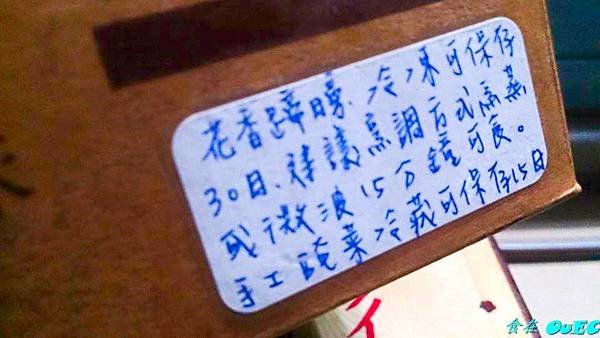 花香蹄膀、冷凍可保存
30日、建議烹調方式為蒸
或微波15分鐘可食。
手工醃菜冷藏可保存15日
食在 OuEC